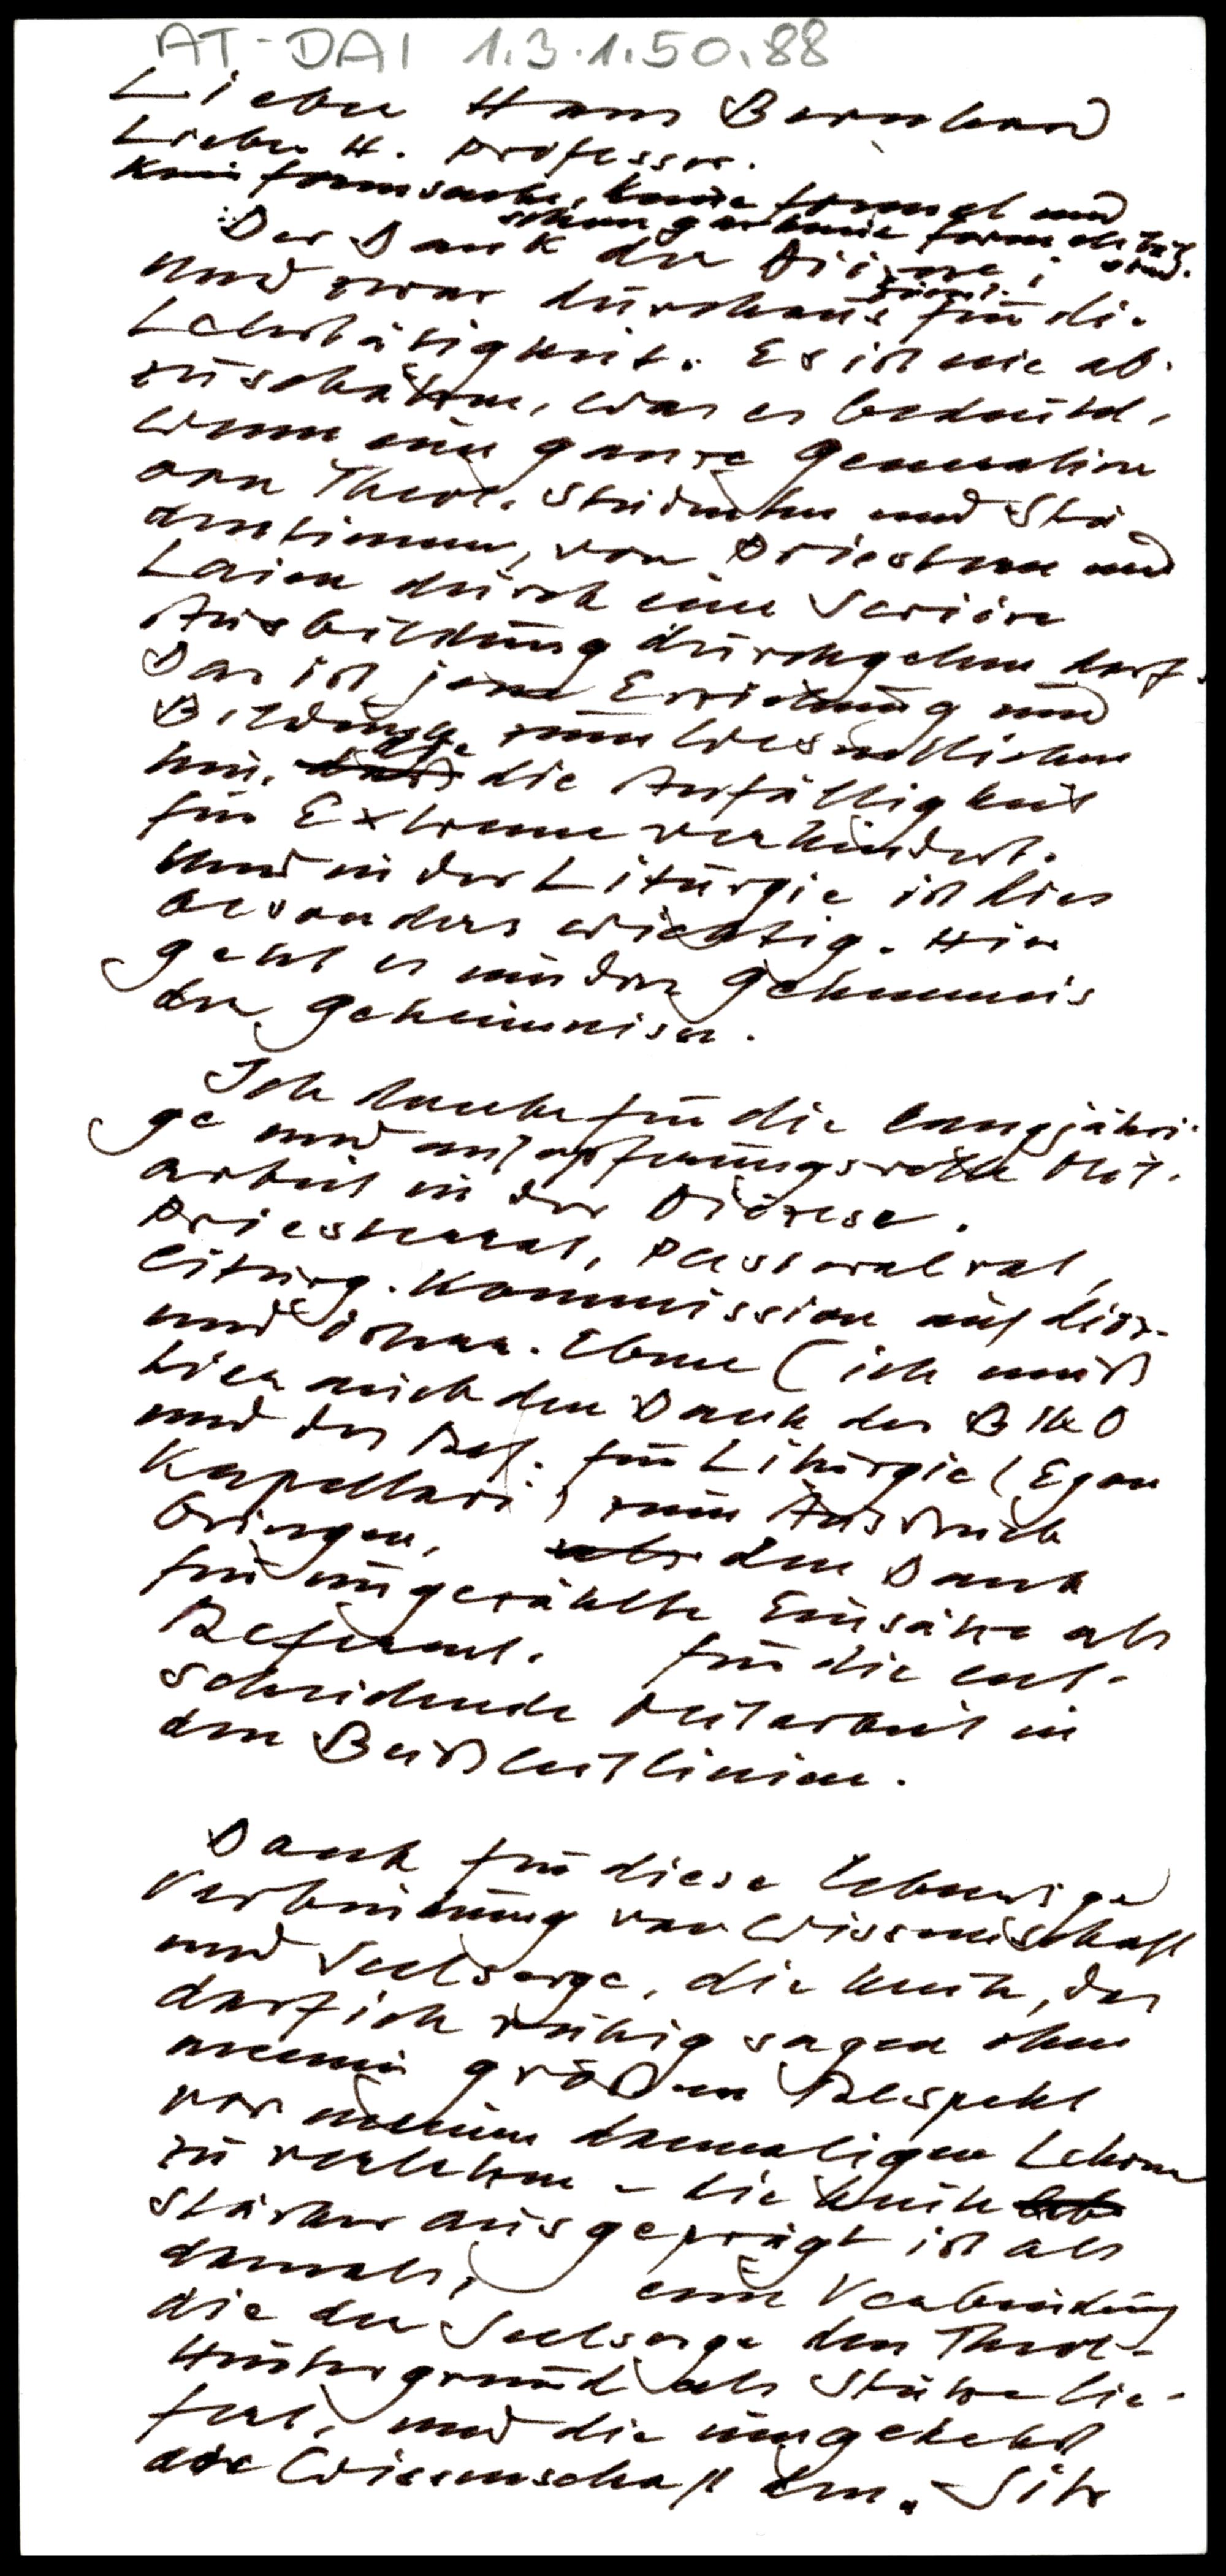 AT-DAI 1.3.1.50.88
Lieber Hans Bernhard
Lieber H. Professor.
Keine Formsache, keine Formel und
schon gar keine Formalität
sind.
Der Dank der Diözese;
und zwar durchaus für die
Lehrtätigkeit. Es ist nie ab-
zuschätzen, was es bedeutet,
wenn eine ganze Generation
von Theol. Studenten und Stu-
dentinnen, von Priestern und
Laien durch eine seriöse
Ausbildung durchgehen darf.
Das ist jene Erziehung und
Bildung zum Wesentlichen
hin, die die Anfälligkeit
für Extreme verhindert.
Und in der Liturgie ist dies
besonders wichtig. Hier
geht es um das Geheimnis
der Geheimnisse.
Ich danke für die langjähri-
ge und aufopferungsvolle Mit-
arbeit in der Diözese.
Priesterrat, Pastoralrat,
Liturg. Kommission auf diöz.
und österr. Ebene (ich muß
hier auch den Dank der BIKO
und des Ref. für Liturgie (Egon
Kapellari) zum Ausdruck
bringen, den Dank
für ungezählte Einsätze als
Referent. für die ent-
scheidende Mitarbeit in
den Bußleitlinien.
Dank für diese lebendige
Verbindung von Wissenschaft
und Seelsorge, die heute, das
darf ich ruhig sagen ohne
meinen großen Respekt
vor meinem damaligen Lehrer
zu verletzen – die heute
stärker ausgeprägt ist als
damals, eine Verbindung
die der Seelsorge den Theol.
Hintergrund als Stütze lie-
fert, und die umgekehrt
die Wissenschaft den „Sitz